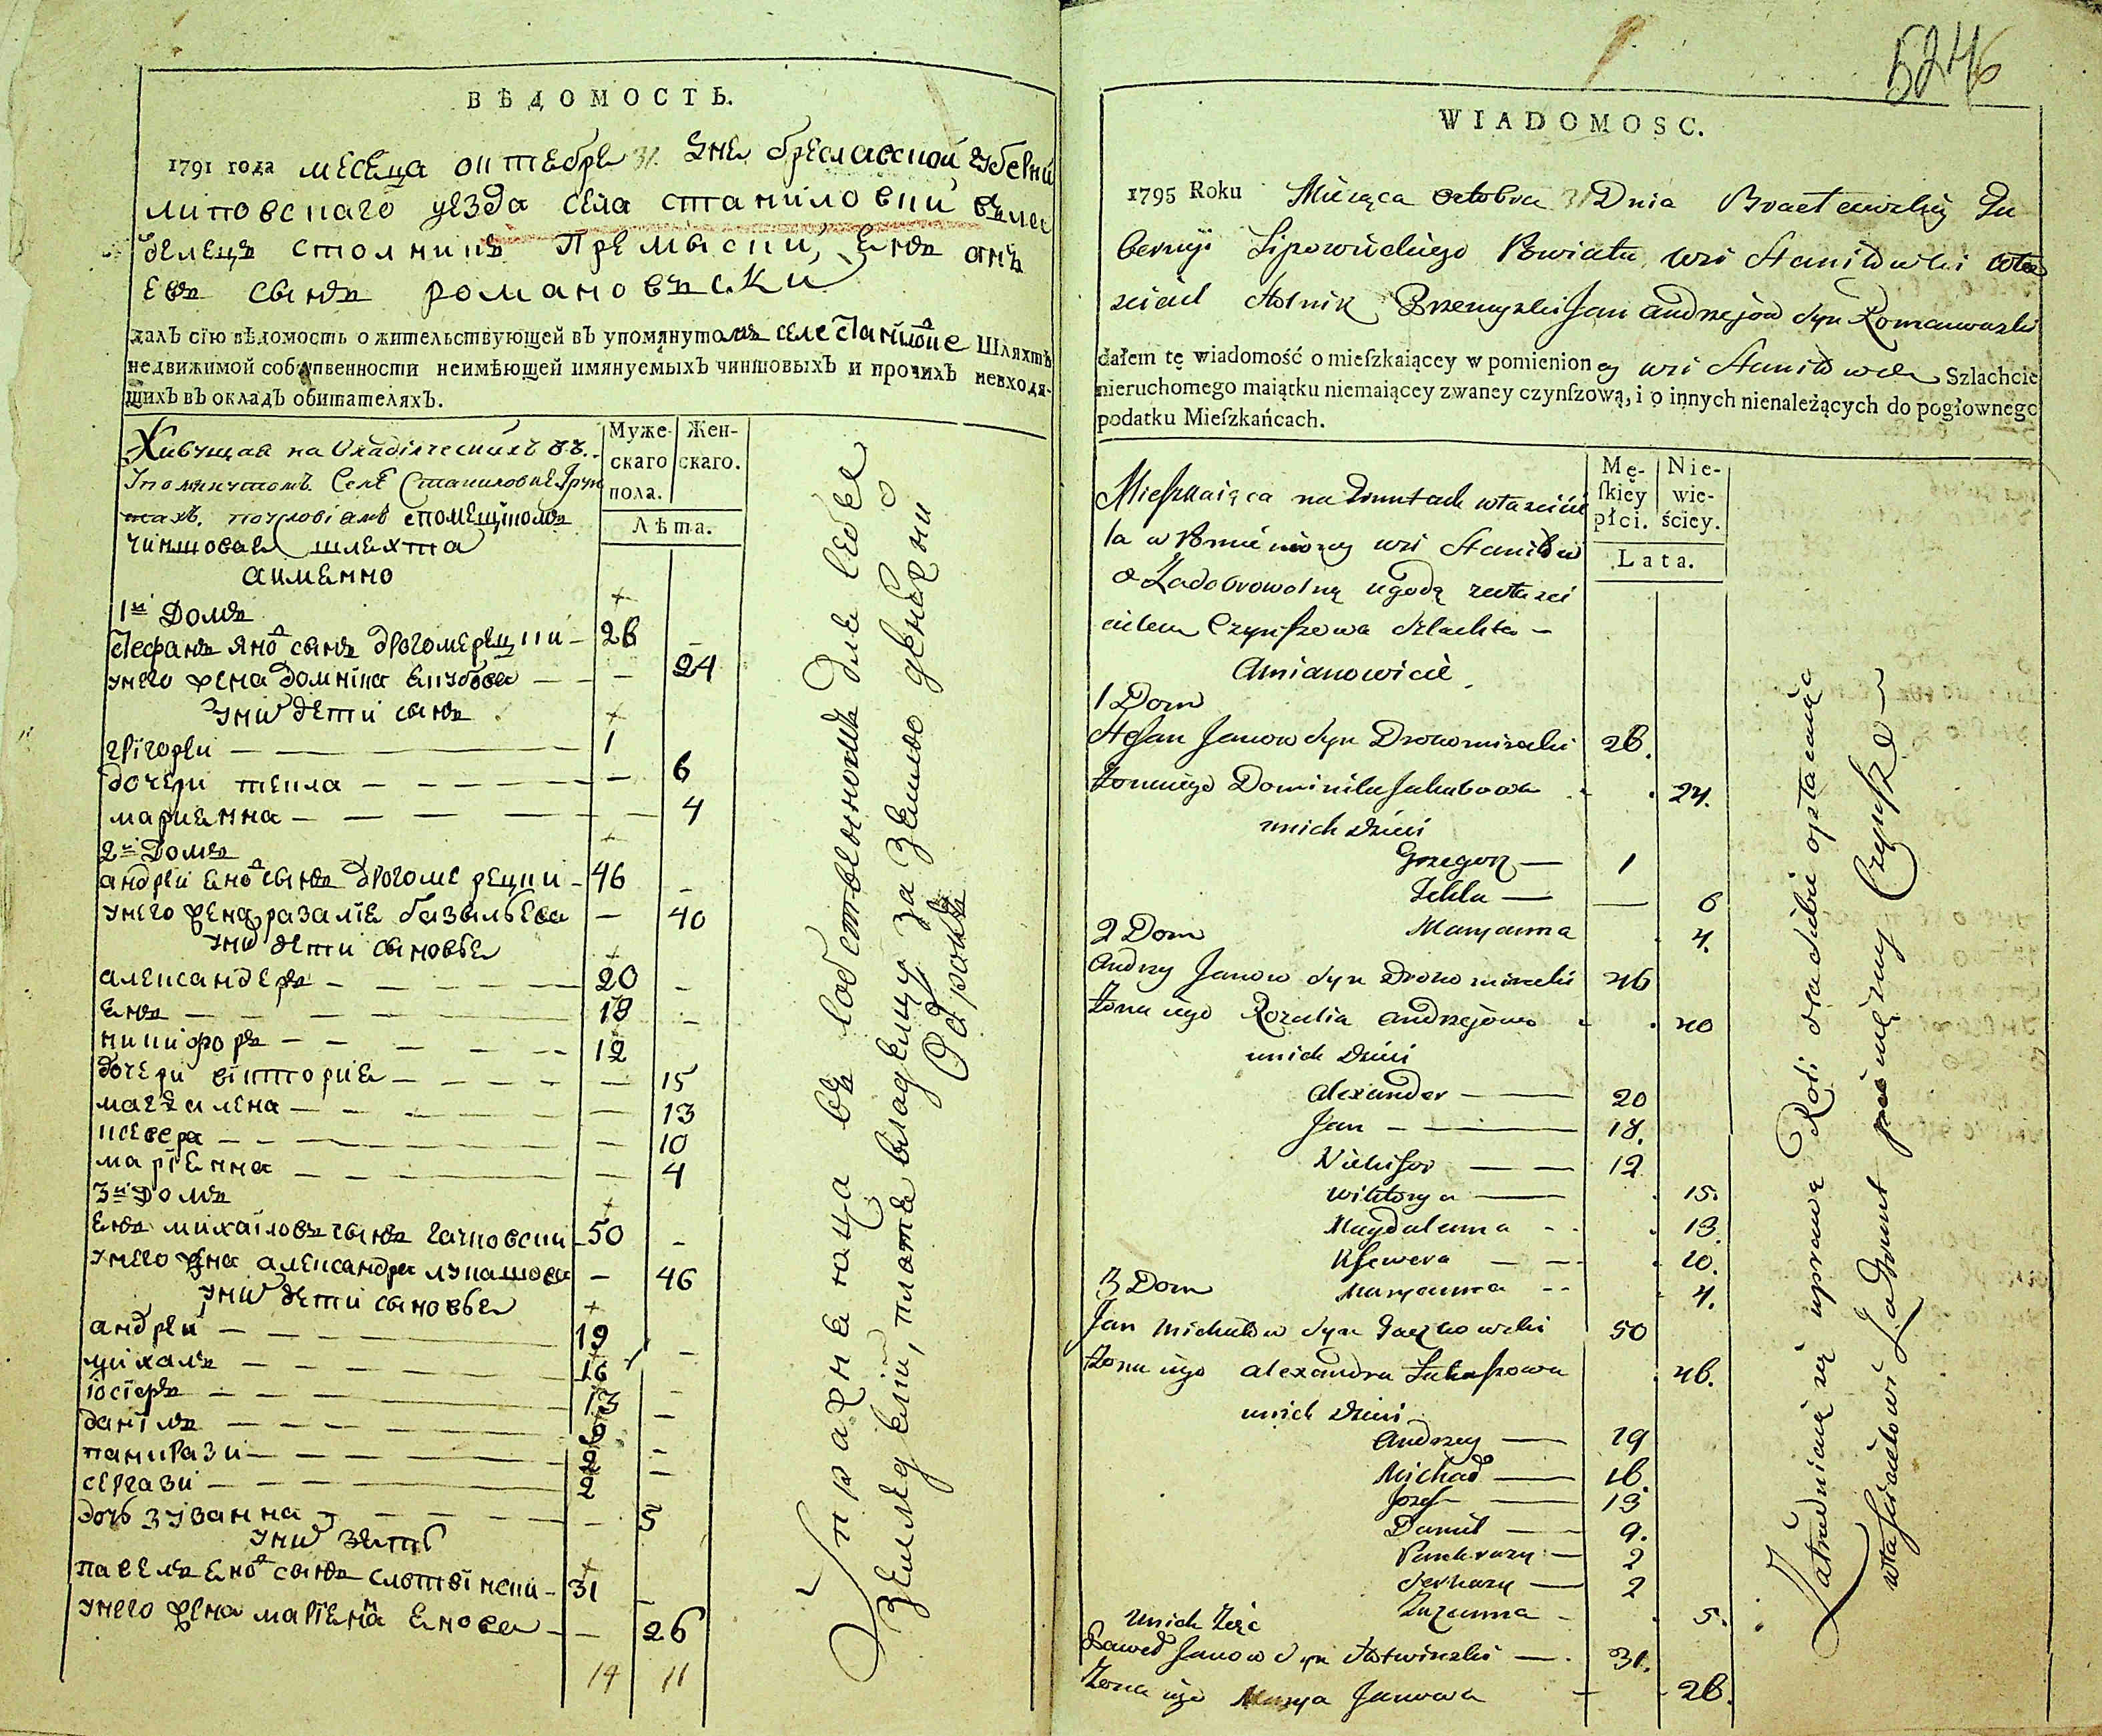 ВѢДОМОСТЬ.
1791 года месяца октебря 31 дня бреславской губерни
липовецкаго уезда села станиловки вла
делецъ столникъ Премыски, янъ анъ
евъ сынъ романовъски
далъ сїю вѣдомость о жительствующей въ упомянутомъ селе станиловке Шляхтѣ
недвижимой собственности неимѣющей имянуемыхъ чиншовыхъ и прочихъ невходя-
щихъ въ окладъ обитателяхъ.
Живущая на Владѣлческихъ въ
Упомянутомъ Селѣ Станиловке Грун
тахъ. поусловіамъ спомещикомъ
чиншовая шляхта
аименно
Муже-
скаго
пола.
Жен-
скаго.
Лѣта.
1й домъ
стефанъ яновъ сынъ дрогомерецки - 26
унего жена домнїка якубова - 24
уних дети сынъ
григори - 1
дочери текла - 6
марианна - 4
2й домъ
андреи яновъ сынъ дрогомерецки - 46
унего жена разалїя базыльева - 40
уних дети сыновья
александеръ - 20
янъ - 18
никифоръ - 12
дочери викториа - 15
магдалена - 13
ксевера - 10
марїанна - 4
3й домъ
янъ михаиловъ сынъ гачковски - 50
унего жена александра лукашова - 46
уних дети сыновья
андреи - 19
михалъ - 16
їосїфъ - 13
данїлъ - 9
панкрази - 2
сергази - 2
дочь зузанна - 5
уних зять
павелъ яновъ сынъ слотвїнски - 31
унего жена марїанна янова - 26
14 11
Упражняюща въ собственности для себя
земледелїи, плотя владелцу за землю денежни
Оброкъ
5246
WIADOMOSC.
1795 Roku Miesiąca Octobra 31 Dnia Bractawskiey Gu
bernyi Lipowieckiego Powiatu wsi Staniłowki Wła
sciciel Stolnik Przemyski Jan Andrzejow syn Romanowski
dałem tę wiadomość o mieſzkaiącey w pomienioney wsi Staniłowce Szlachcie
nieruchomego maiątku niemaiącey zwaney czynſzową, i o innych nienależących do pogłownego
podatku Mieſzkańcach.
Mieſzkaiąca na Gruntach własciciе
la w Pomienioney wsi Staniłow
ce Zadobrowolną ugodą zwłasci
cielem Czynſzowa szlachta -
Amianowicie
Mę-
ſkiey
płci.
Nie-
wie-
ściey.
Lata.
1 Dom
Stefan Janow syn Drohomirecki 26.
Żonaiego Dominika Jakubowa 24.
unich dzieci
Grzegorz — 1
Tekla — 6
2 Dom Maryanna 4.
Andrzy Janow syn Drohomirecki 46
Żona iego Rozalia Andrzejowa 40
unich dzieci
Alexander — 20
Jan - 18.
Nikifor — 12
Wiktorya — 15.
Magdalenna - 13.
Kſewera - 10.
3 Dom Maryanna - 4.
Jan Michałow syn Gaczkowski 50
Żona iego Alexandra Łukaſzowa 46.
unich dzieci
Andrzey — 19
Michał — 16.
Jozef — 13
Danił — 9.
Pankrazy — 2
Serhazy — 2
Unich Zięć Zuzanna - 5.
Paweł Janow syn Słotwinski — 31.
Żona iego Marya Janowa - 26.
Zatrudniaiąca się uprawą Roli dla siebie opłacaiąca
właścicielowi Zagrunt pieniężny Czynſz